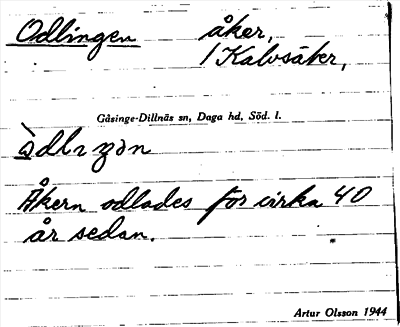 Odlingen åker,
/ Kalvsåker,
Gåsinge-Dillnäs sn, Daga hd, Söd. l.
Åkern odlades för cirka 40
år sedan.
Artur Olsson 1944